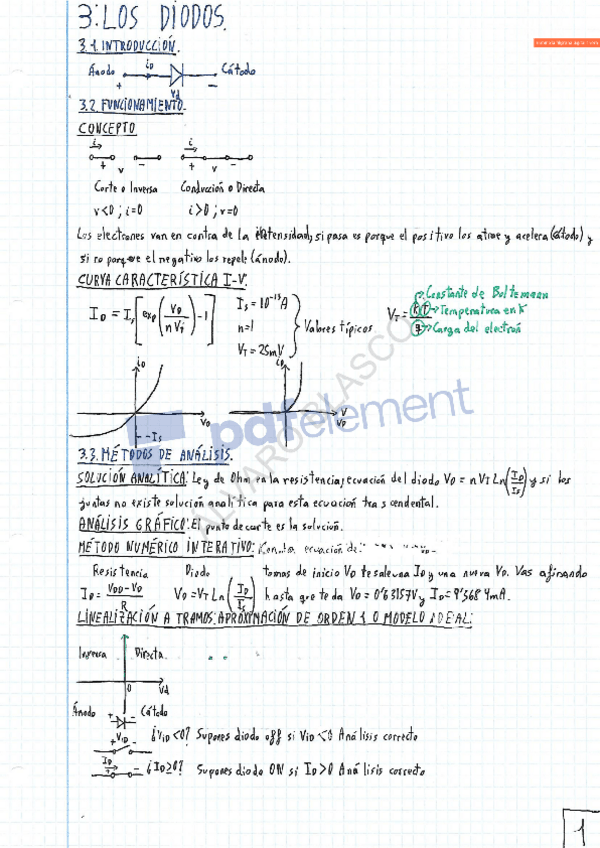 3: LOS DIODOS.
3.1 INTRODUCCIÓN.
Ánodo + iD Vd - Cátodo
3.2. FUNCIONAMIENTO.
CONCEPTO
i i
+ v - + v -
Corte o Inversa Conducción o Directa
v<0; i=0 i>0; v=0
Los electrones van en contra de la intensidad, si pasa es porque el positivo los atrae y acelera (cátodo) y
si no porque el negativo los repele (ánodo).
CURVA CARACTERÍSTICA I-V.
ID = Is [exp(VD/nVT) -1] Is = 10^-13 A
n=1
VT = 25mV
Valores típicos
VT = KT/q
Constante de Boltzmann
Temperatura en K
Carga del electrón
iD VD -Is
iD V VD
3.3. MÉTODOS DE ANÁLISIS.
SOLUCIÓN ANALÍTICA: Ley de Ohm en la resistencia; ecuación del diodo VD = nVT Ln(ID/Is) y si los
juntas no existe solución analítica para esta ecuación trascendental.
ANÁLISIS GRÁFICO: El punto de corte es la solución.
MÉTODO NUMÉRICO INTERATIVO: Con la ecuación de
Resistencia Diodo tomas de inicio VD te sale una ID y una nueva VD. Vas afinando
ID = VDD-VD/R VD = VT Ln(ID/Is) hasta que te da VD = 0'63157V y ID = 9'3684mA.
LINEALIZACIÓN A TRAMOS: APROXIMACIÓN DE ORDEN 1 O MODELO IDEAL:
Inversa Directa
0 Vd
Ánodo + - Cátodo
+ VID - ¿VID<0? Supones diodo off si VID<0 Análisis correcto
ID + - ¿ID≥0? Supones diodo ON si ID>0 Análisis correcto
1
ALVARO BLASCO
pdfelement